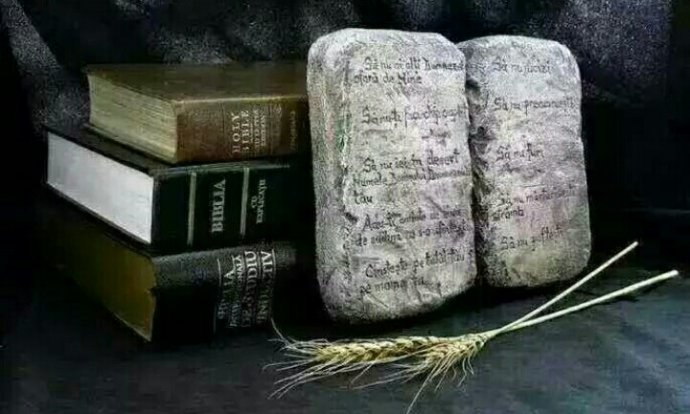 HOLY
BIBLE
BIBLIA
CU
EXPLICAȚII
BIBLIA
DE STUDIU
INDUCTIV
Să nu ai alți Dumnezei
afară de Mine
Să nu-ți faci chip cioplit
Să nu iei în deșert
Numele Domnului Dumnezeului
tău
Adu-ți aminte
de odihnă ca s-o sfințești
Cinstește pe tatăl tău
pe mama ta
Să nu ucizi
Să nu preacurvești
Să nu furi
Să nu mărturisești
strâmb
Să nu poftești